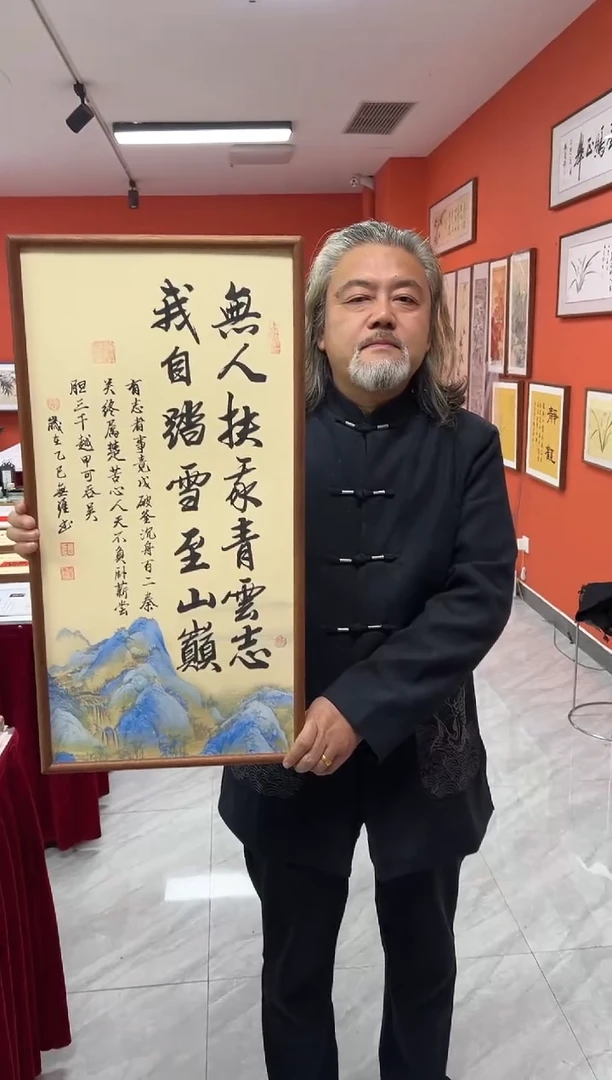 無人扶我青雲志
我自踏雪至山巔
有志者事竟成破釜沉舟百二秦
关终属楚苦心人天不負卧薪尝
胆三千越甲可吞吴
歲在乙巳
靜